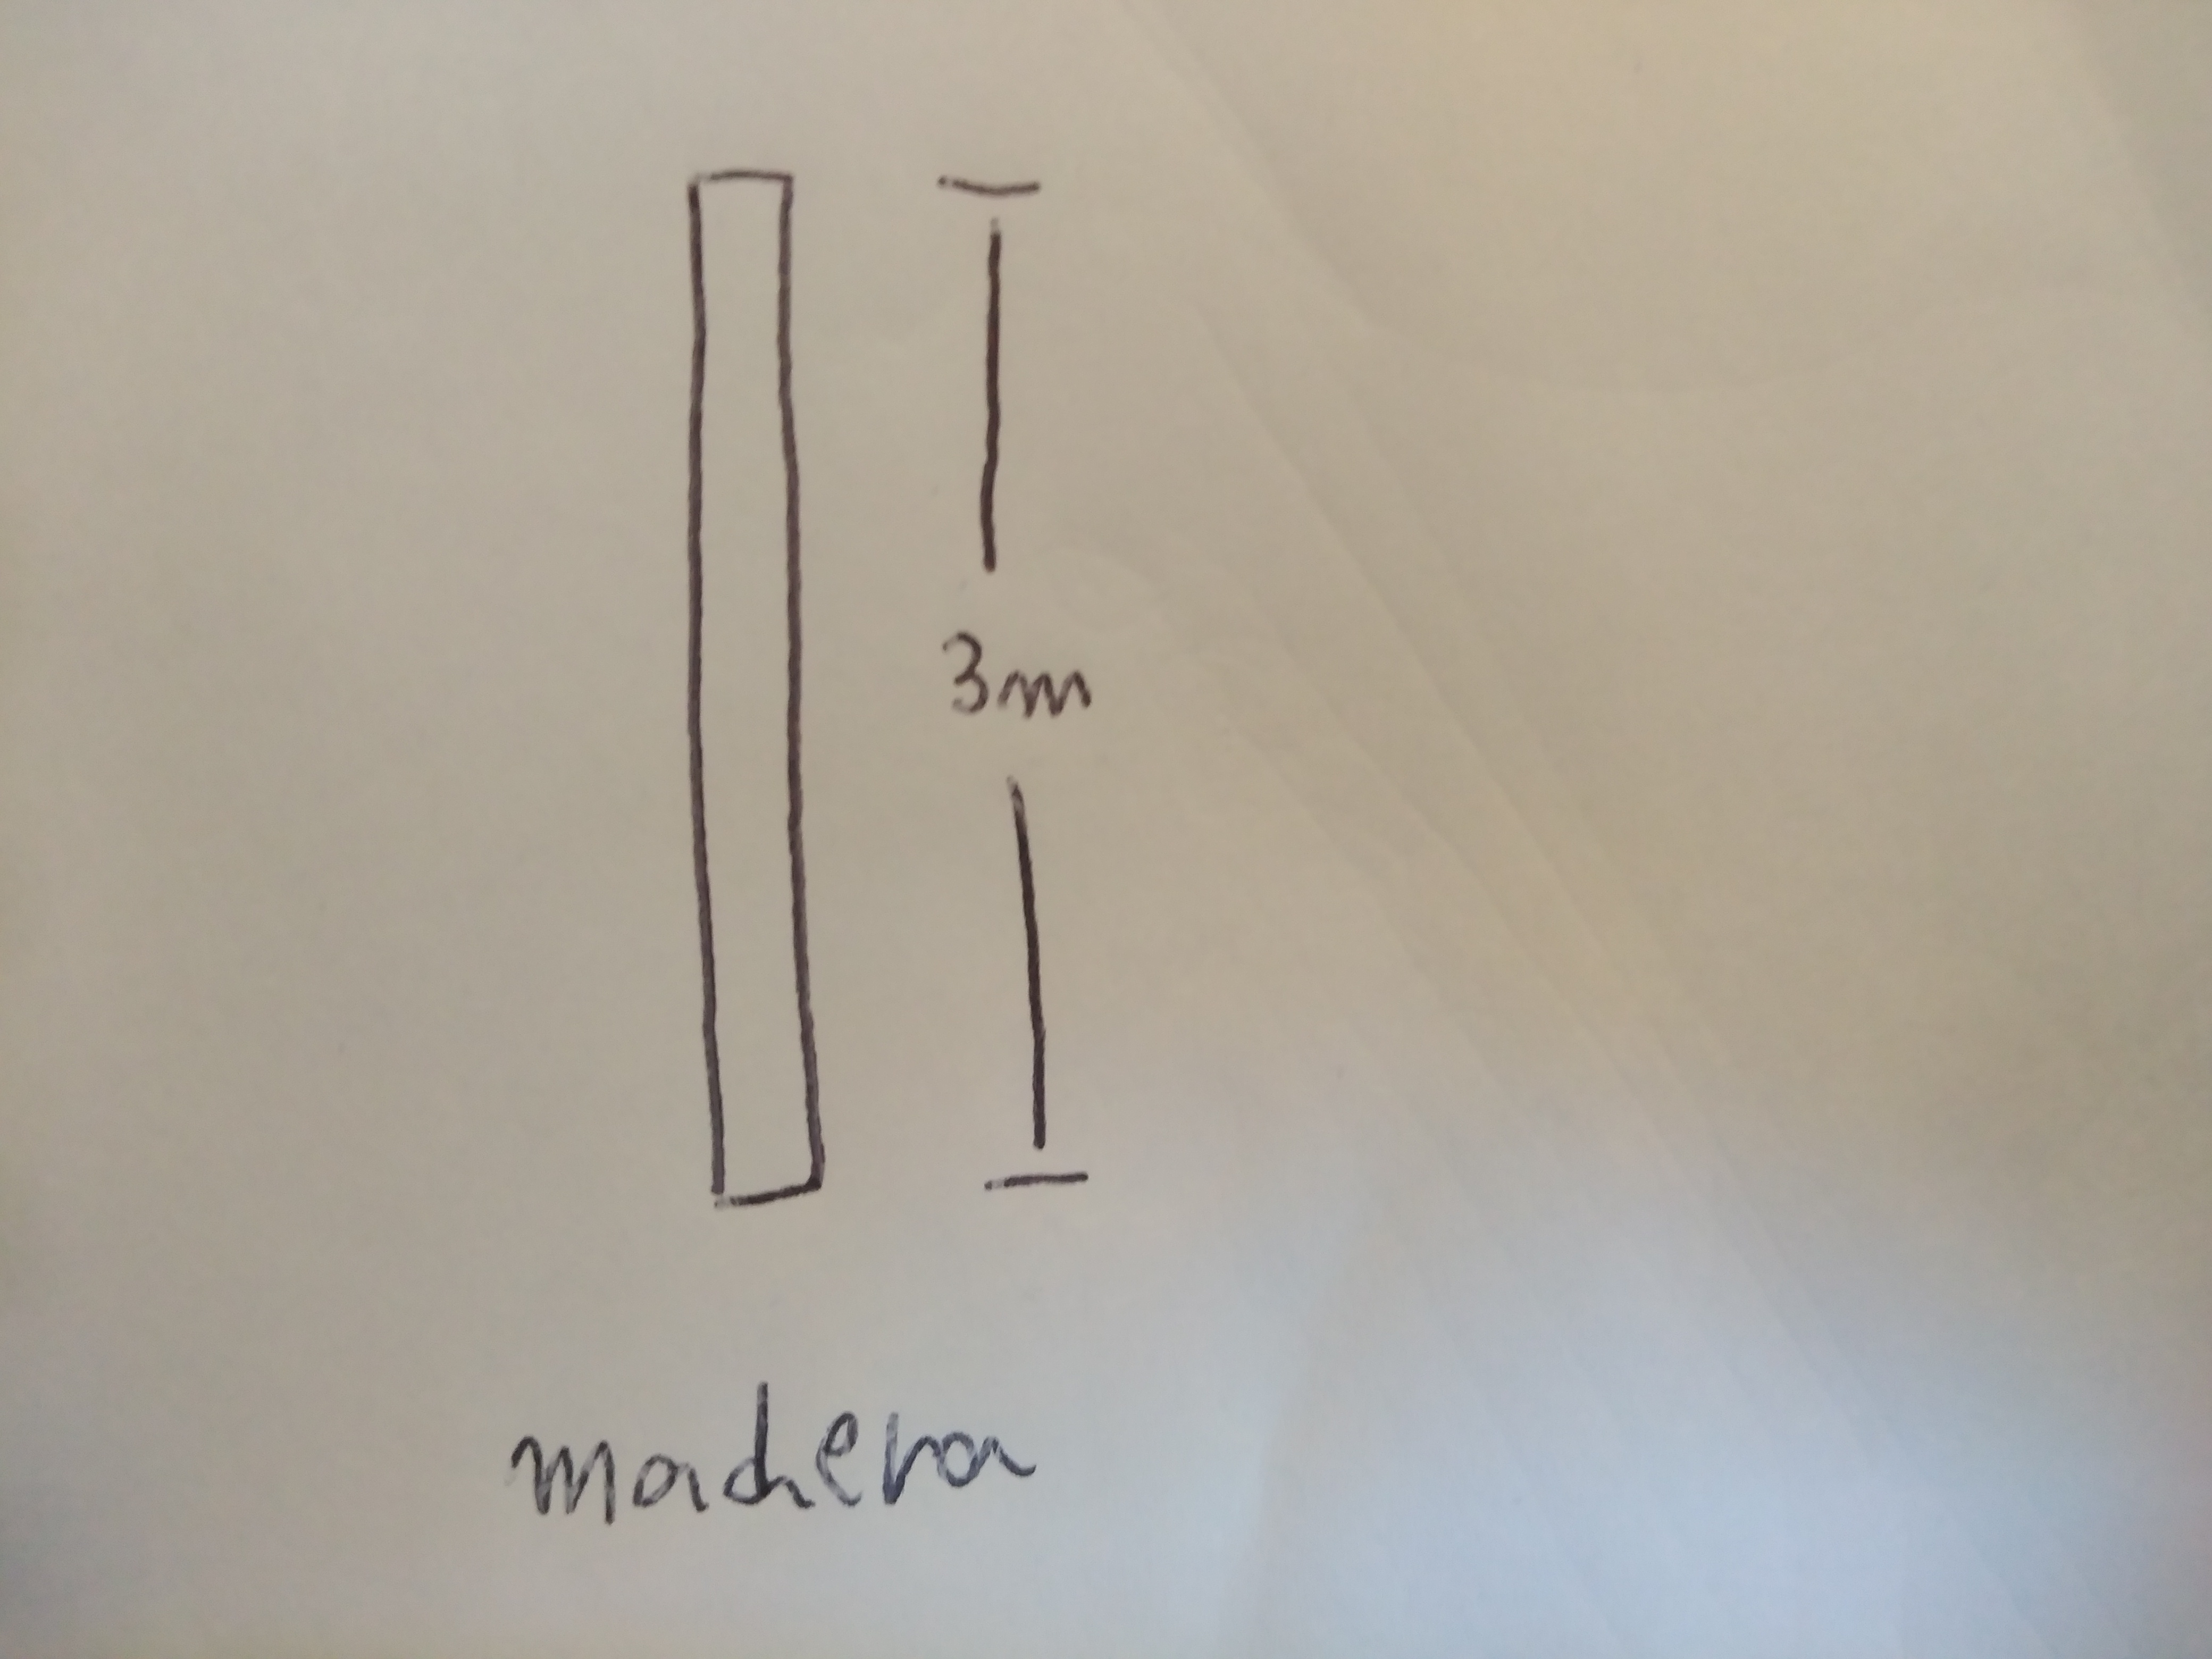 3m
madera